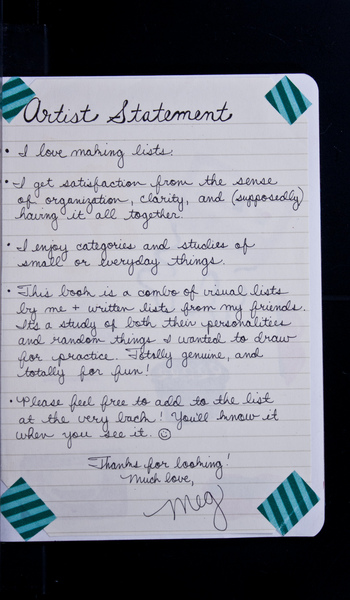 Artist Statement
• I love making lists.
• I get satisfaction from the sense
of organization, clarity, and (supposedly)
having it all together.
• I enjoy categories and studies of
small or everyday things.
• This book is a combo of visual lists
by me + written lists from my friends.
It's a study of both their personalities
and random things I wanted to draw
for practice. Totally genuine, and
totally for fun!
• Please feel free to add to the list
at the very back! You'll know it
when you see it. ☺
Thanks for looking!
Much love,
Meg